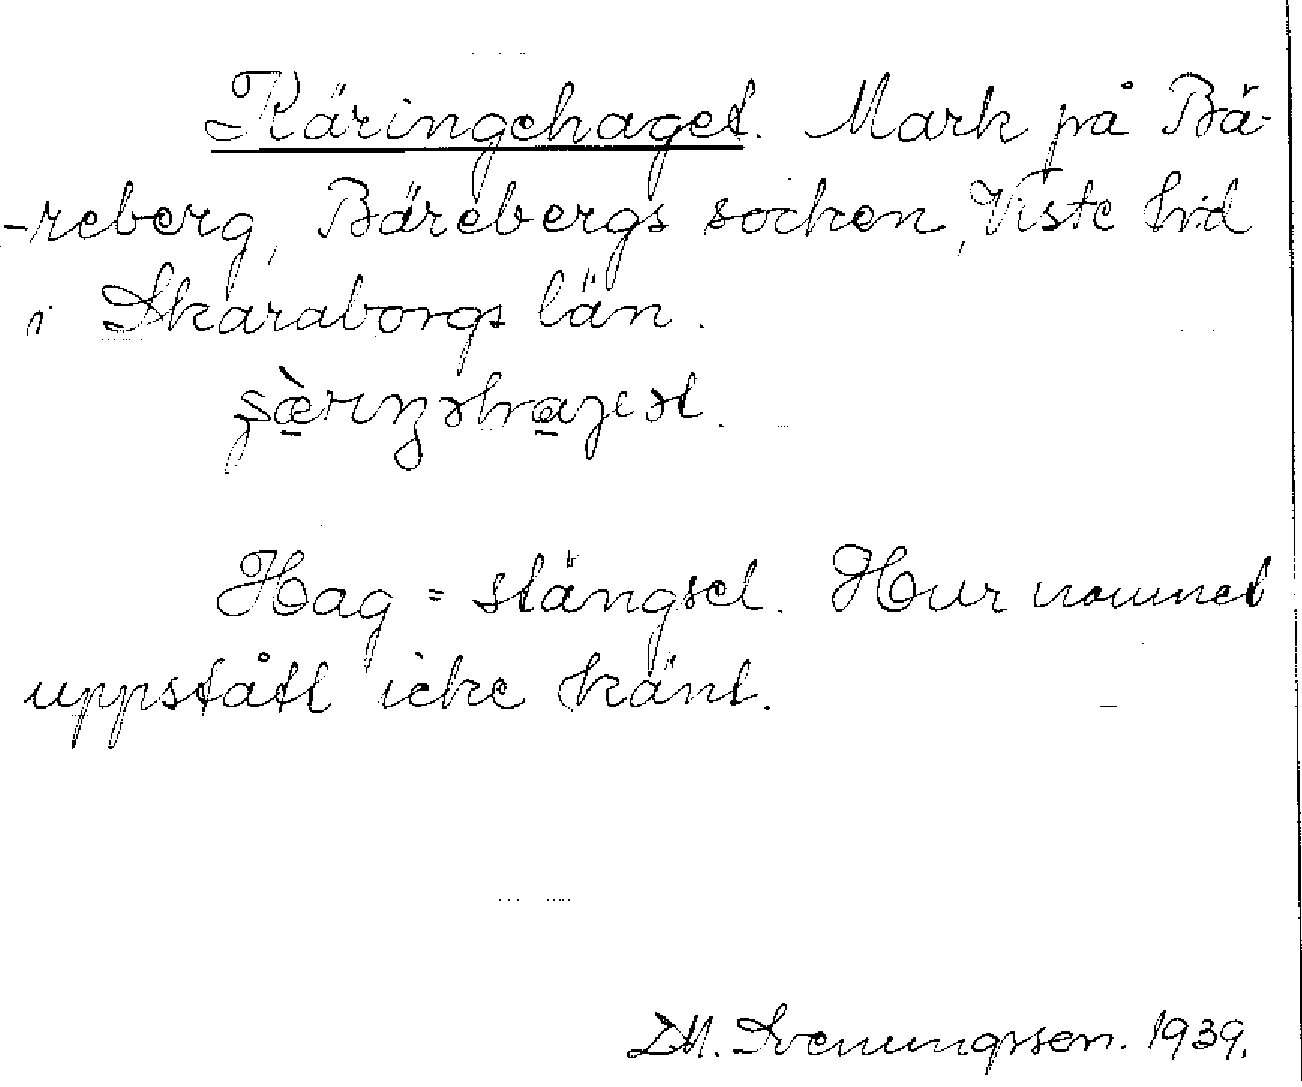 Käringehaget. Mark på Bä-
-reberg, Bärebergs socken, Viste hd
i Skaraborgs län.
Hag = stängsel. Hur namnet
uppstått icke känt.
Svenungsson. 1939.